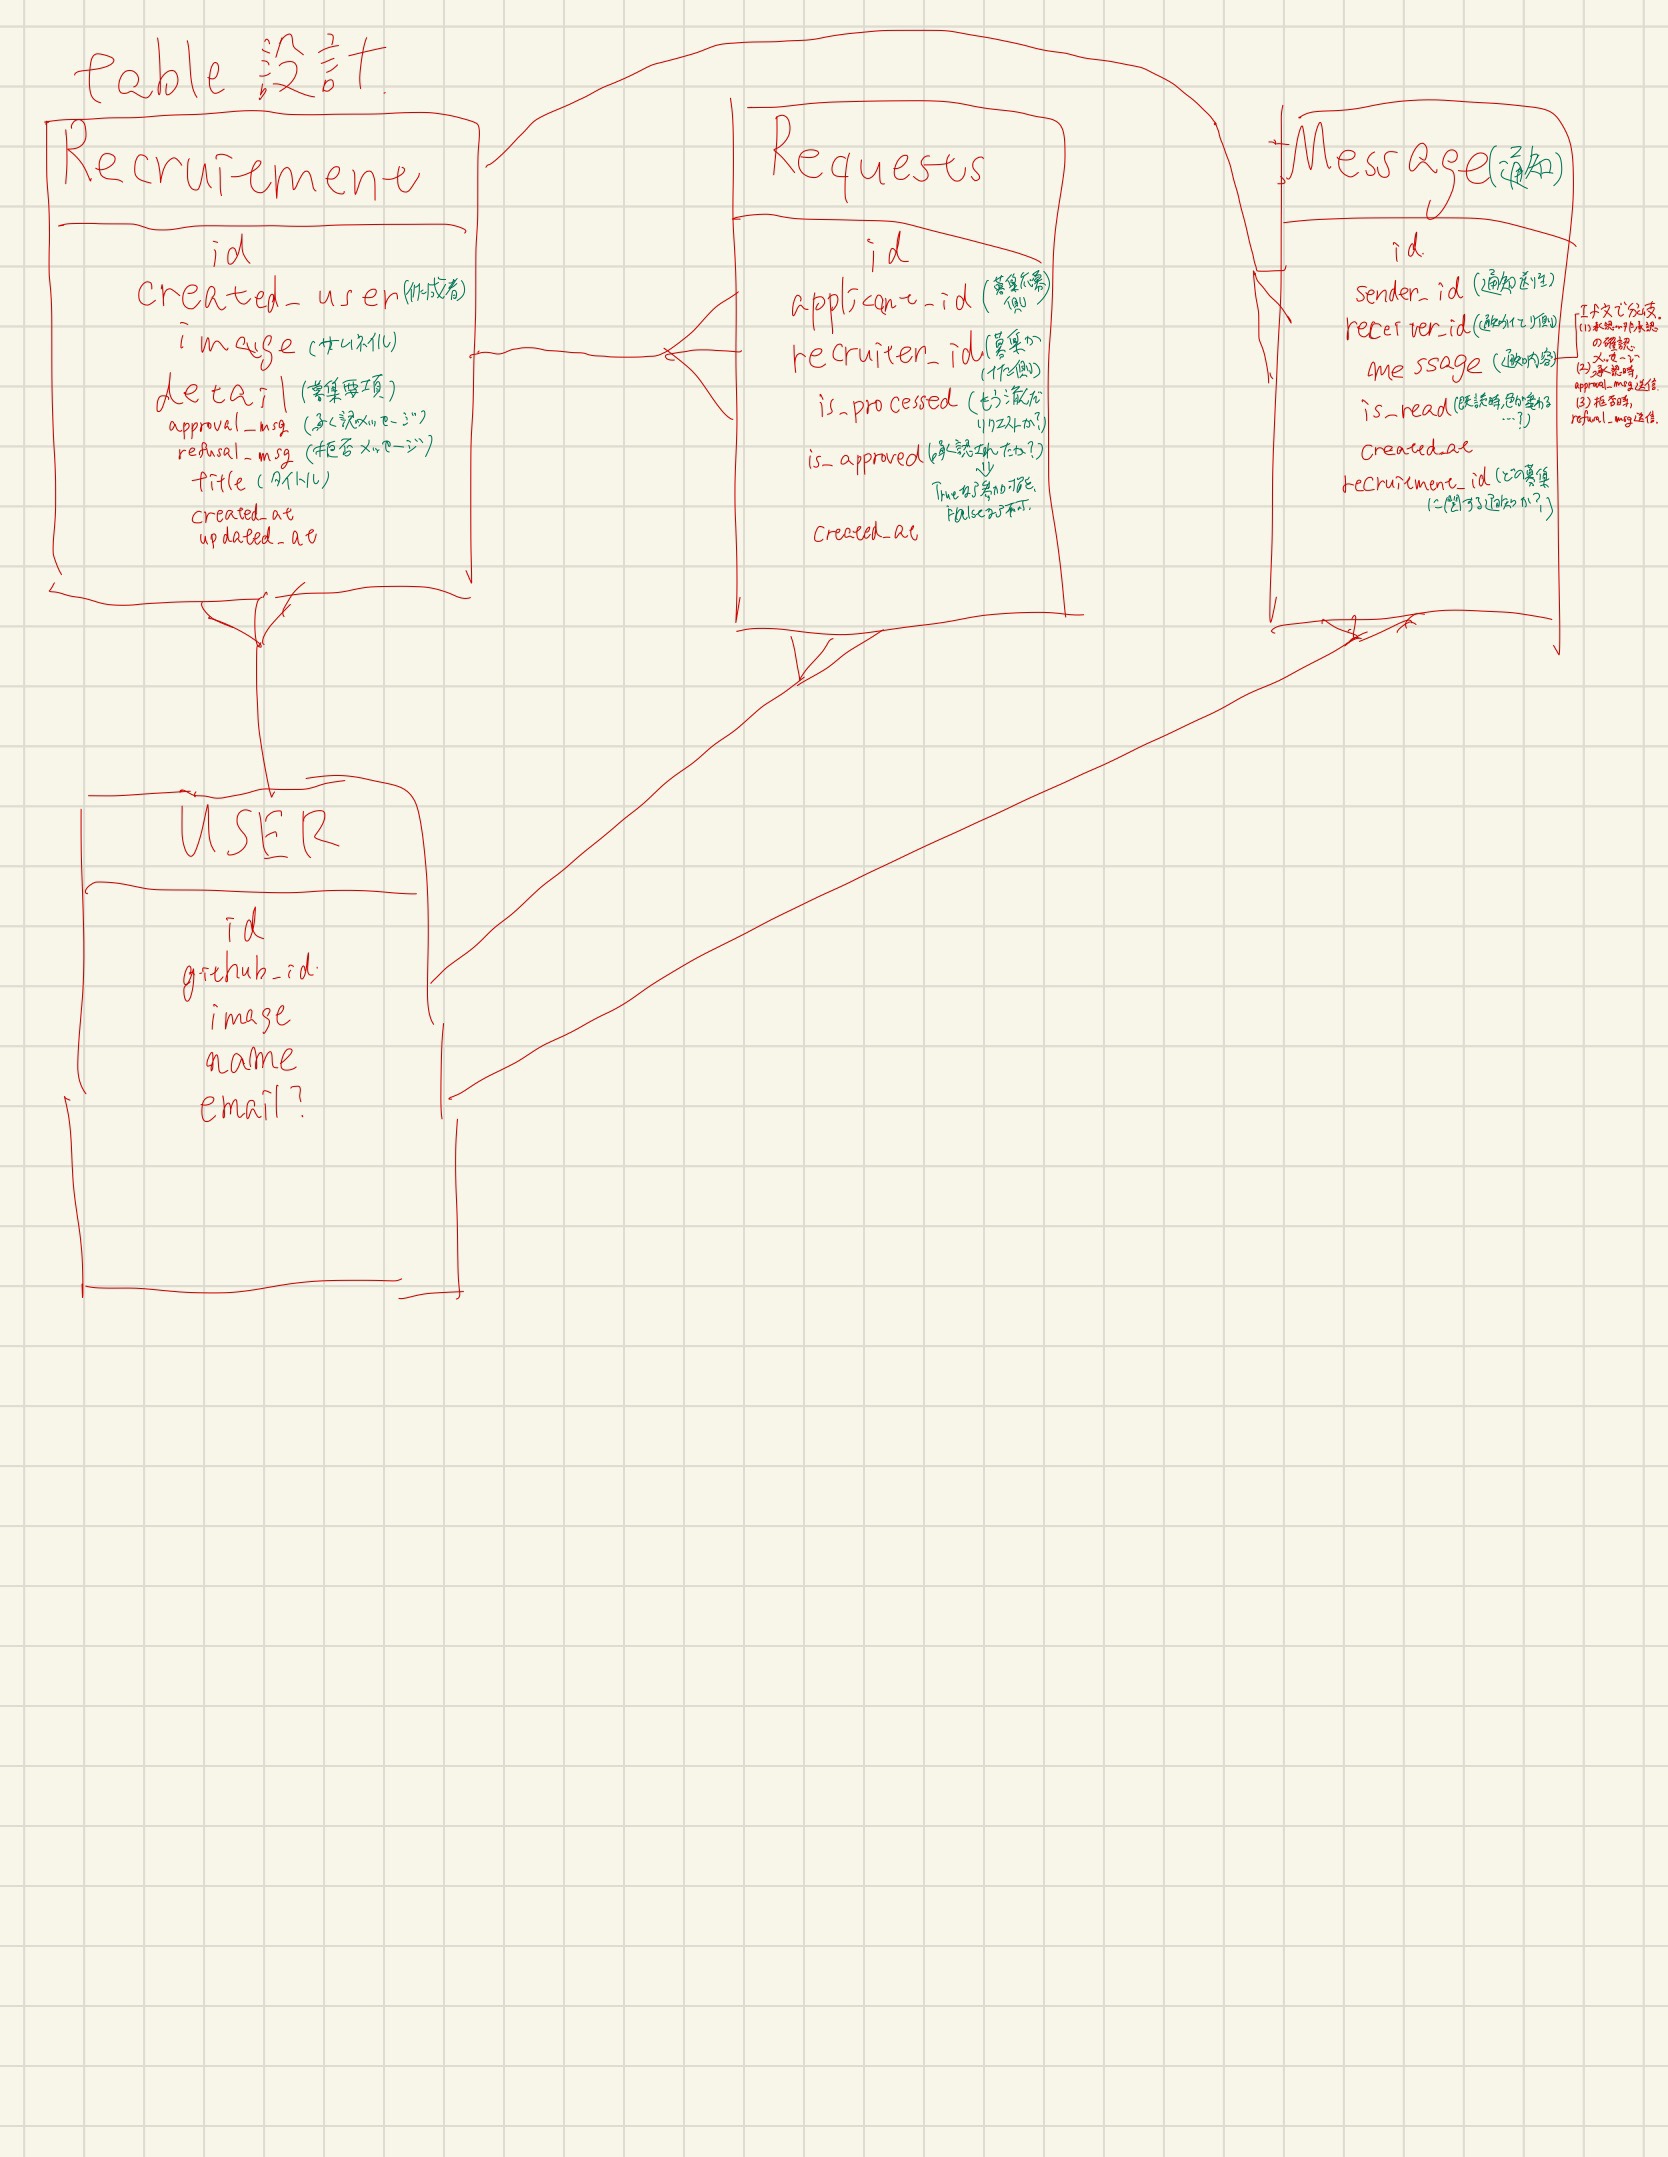 table 設計
Recruitement
id
created_user (作成者)
image (サムネイル)
detail (募集要項)
approval_msg (承認メッセージ)
refusal_msg (拒否メッセージ)
title (タイトル)
created_at
updated_at
Requests
id
applicant_id (募集応募
側)
recruiter_id (募集か
けた側)
is_processed (もう澈んだ
リクエストか?)
is_approved (承認されたか?)
⇓
Trueなら参加可能、
Falseなら不可.
created_at
Message (通知)
id
sender_id (通知送り主)
receiver_id
message (通知内容)
is_read (既読時,色が変わる
…?)
created_at
recruitment_id (どの募集
に関する通知か?)
If文で分岐.
(1)承認or非承認
の確認
メッセージ
(2)承認時,
approval_msg送信.
(3)拒否時,
refusal_msg送信.
USER
id
github_id
image
name
email?